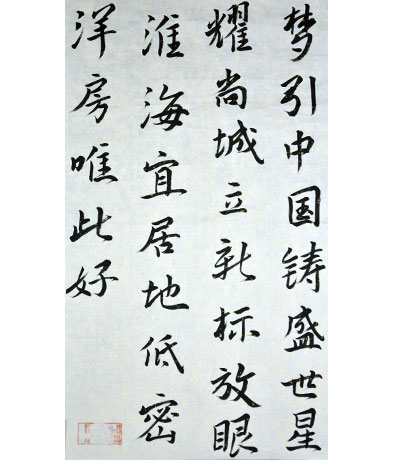 梦引中国铸盛世星
耀尚城立新标放眼
淮海宜居地低密
洋房唯此好